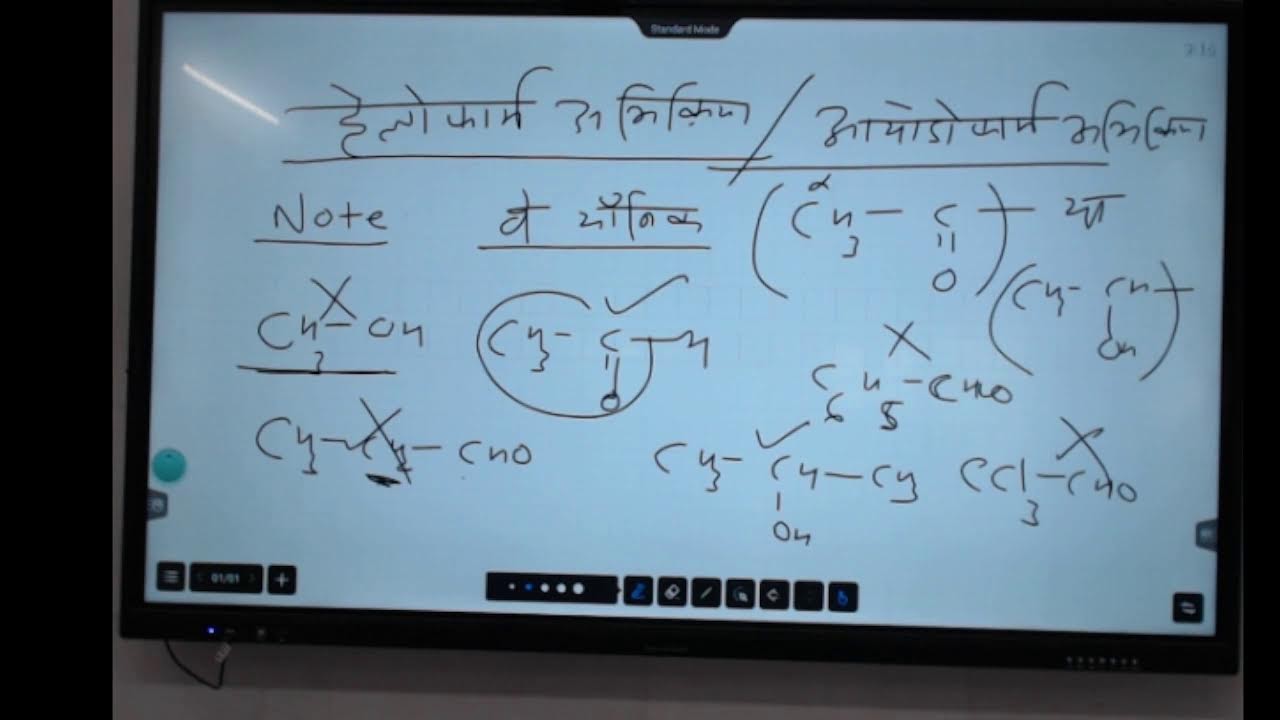 Standard Mode
हैलोफार्म अभिक्रिया / आयोडोफार्म अभिक्रिया
Note वे यौगिक (CH3 — C — या
α
||
O
(CH3 – CH —
|
OH
CH3 – OH
CH3 – C — H
||
O
C6H5 – CHO
CH3 – CH2 – CHO
CH3 – CH — CH3
|
OH
CCl3 – CHO
01/01